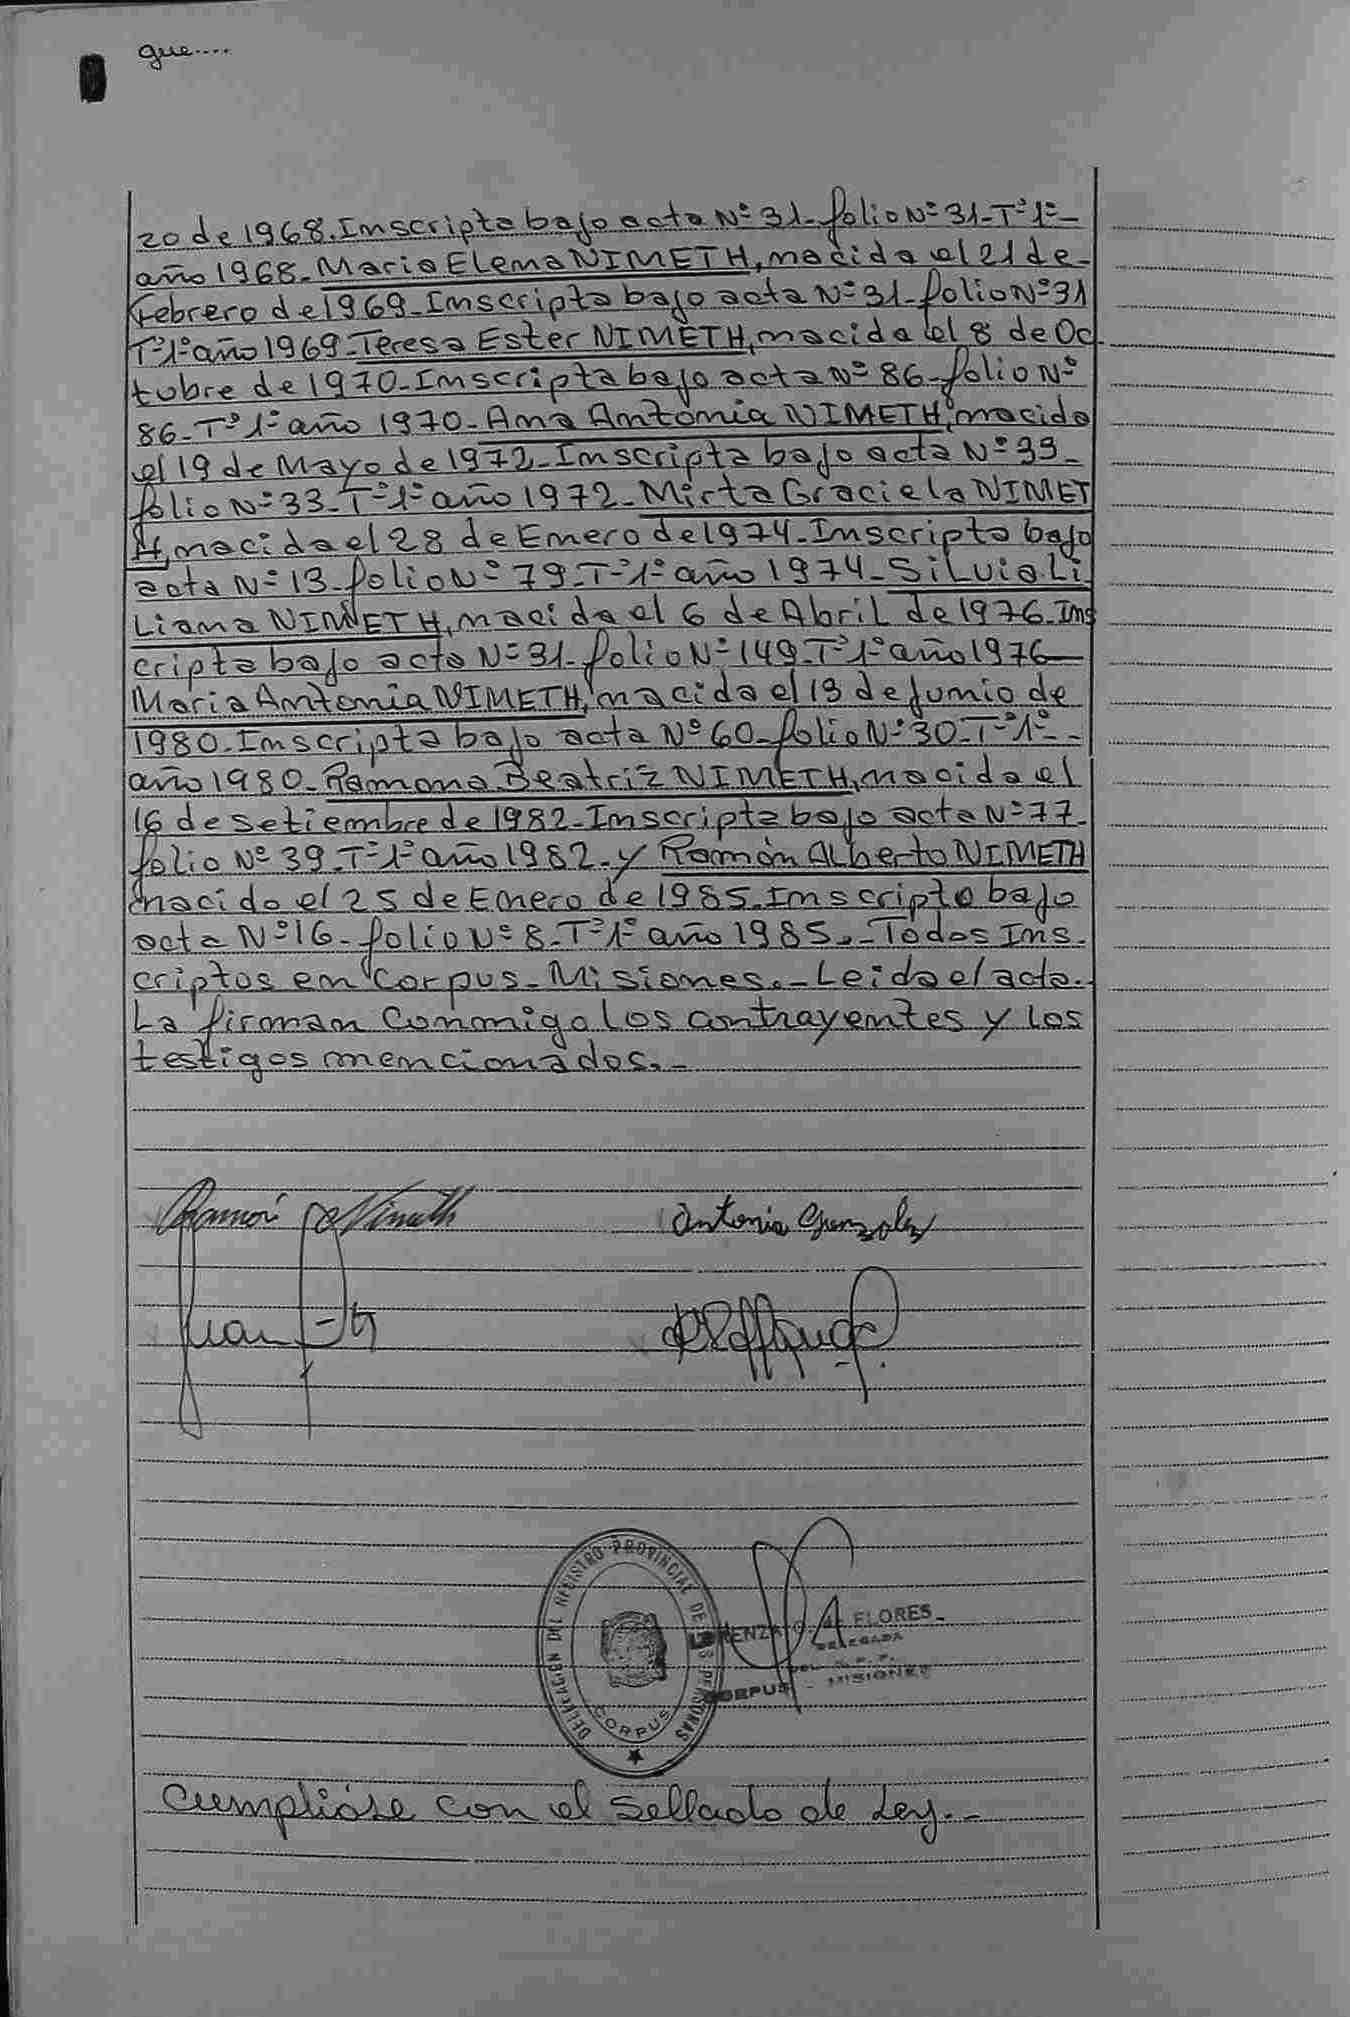 que....
zo de 1968. Inscripta bajo acta Nº 31_ folio Nº 31_ Tº 1º_
año 1968_ Maria Elena NIMETH, nacida el 21 de_
Febrero de 1969_ Inscripta bajo acta Nº 31_ folio Nº 31
Tº 1º año 1969_ Teresa Ester NIMETH, nacida el 8 de Oc
tubre de 1970_ Inscripta bajo acta Nº 86_ folio Nº
86_ Tº 1º año 1970_ Ana Antonia NIMETH, nacida
el 19 de Mayo de 1972_ Inscripta bajo acta Nº 39_
folio Nº 33_ Tº 1º año 1972_ Mirta Graciela NIMET
H, nacida el 28 de Enero de 1974_ Inscripta bajo
acta Nº 13_ folio Nº 79_ Tº 1º año 1974_ Silvia Li
Liana NIMETH, nacida el 6 de Abril de 1976_ Ins
cripta bajo acta Nº 31_ folio Nº 149_ Tº 1º año 1976_
Maria Antonia NIMETH, nacida el 13 de Junio de
1980_ Inscripta bajo acta Nº 60_ folio Nº 30_ Tº 1º_
año 1980_ Ramona Beatriz NIMETH, nacida el
16 de setiembre de 1982_ Inscripta bajo acta Nº 77_
folio Nº 39_ Tº 1º año 1982_ y Ramón Alberto NIMETH
nacido el 25 de Enero de 1985. Inscripto bajo
acta Nº 16_ folio Nº 8_ Tº 1º año 1985._ Todos Ins_
criptos en Corpus_ Misiones._ Leida el acta.
La firman Conmigo los contrayentes y los
testigos mencionados._
Ramón Nimeth Antonia Gonzalez
Juan
DELEGACION DEL REGISTRO PROVINCIAL DE LAS PERSONAS
CORPUS
FLORES
DELEGADA
CORPUS - MISIONES
Cumplióse con el Sellado de Ley._